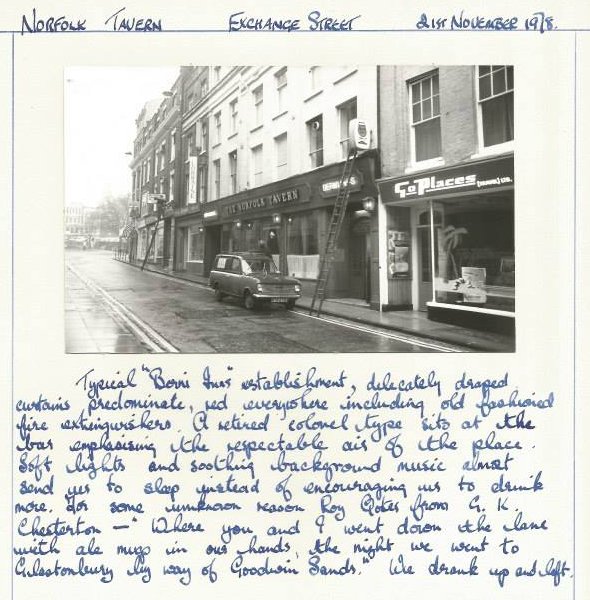 NORFOLK TAVERN EXCHANGE STREET 21ST NOVEMBER 1978.
THE NORFOLK TAVERN
BERNI INNS
Go Places
Typical "Berni Inns" establishment, delicately draped
curtains predominate, red everywhere including old fashioned
fire extinguishers. A retired colonel type sits at the
bar emphasising the respectable air of the place.
Soft lights and soothing background music almost
send us to sleep instead of encouraging us to drink
more. For some unknown reason Roy Quotes from G. K.
Chesterton — "Where you and I went down the lane
with ale mugs in our hands, the night we went to
Glastonbury by way of Goodwin Sands." We drank up and left.